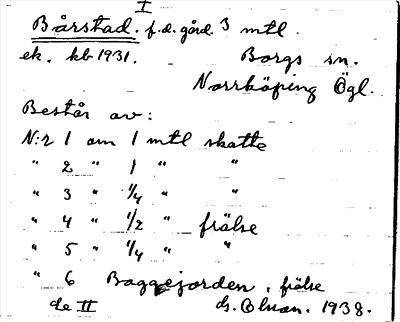 I
Bårstad. f.d. gård. 3 mtl.
ek. kb 1931. Borgs sn.
Norrköping Ögl.
Består av:
N:r 1 om 1 mtl skatte
" 2 " 1 " "
" 3 " 1/4 " "
" 4 " 1/2 " frälse
" 5 " 1/4 " "
" 6 Baggejorden, frälse
de II Olsson. 1938.